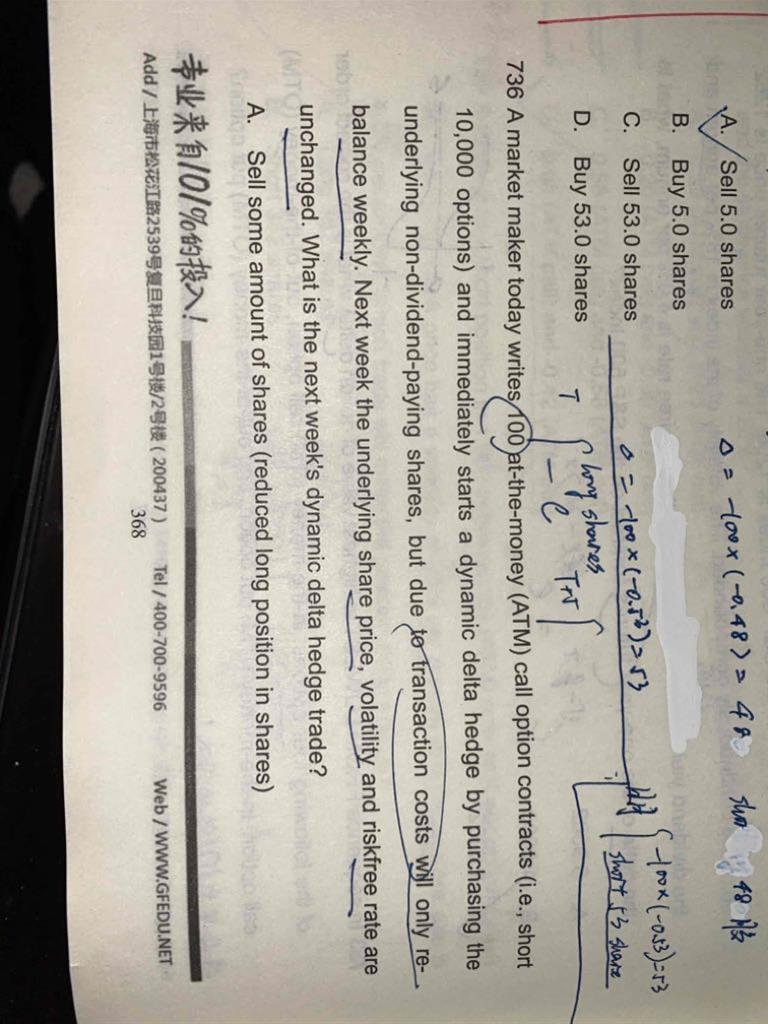 A. Sell 5.0 shares
Δ = -100×(-0.48) = 48
B. Buy 5.0 shares
C. Sell 53.0 shares
Δ = -100×(-0.53) = 53
-100×(-0.53)=53
short 53 share
D. Buy 53.0 shares
T
long shares
- C
736 A market maker today writes 100 at-the-money (ATM) call option contracts (i.e., short
10,000 options) and immediately starts a dynamic delta hedge by purchasing the
underlying non-dividend-paying shares, but due to transaction costs will only re-
balance weekly. Next week the underlying share price, volatility and riskfree rate are
unchanged. What is the next week's dynamic delta hedge trade?
A. Sell some amount of shares (reduced long position in shares)
专业来自101%的投入!
Add / 上海市松花江路2539号复旦科技园1号楼/2号楼 ( 200437 ) Tel / 400-700-9596 Web / WWW.GFEDU.NET
368